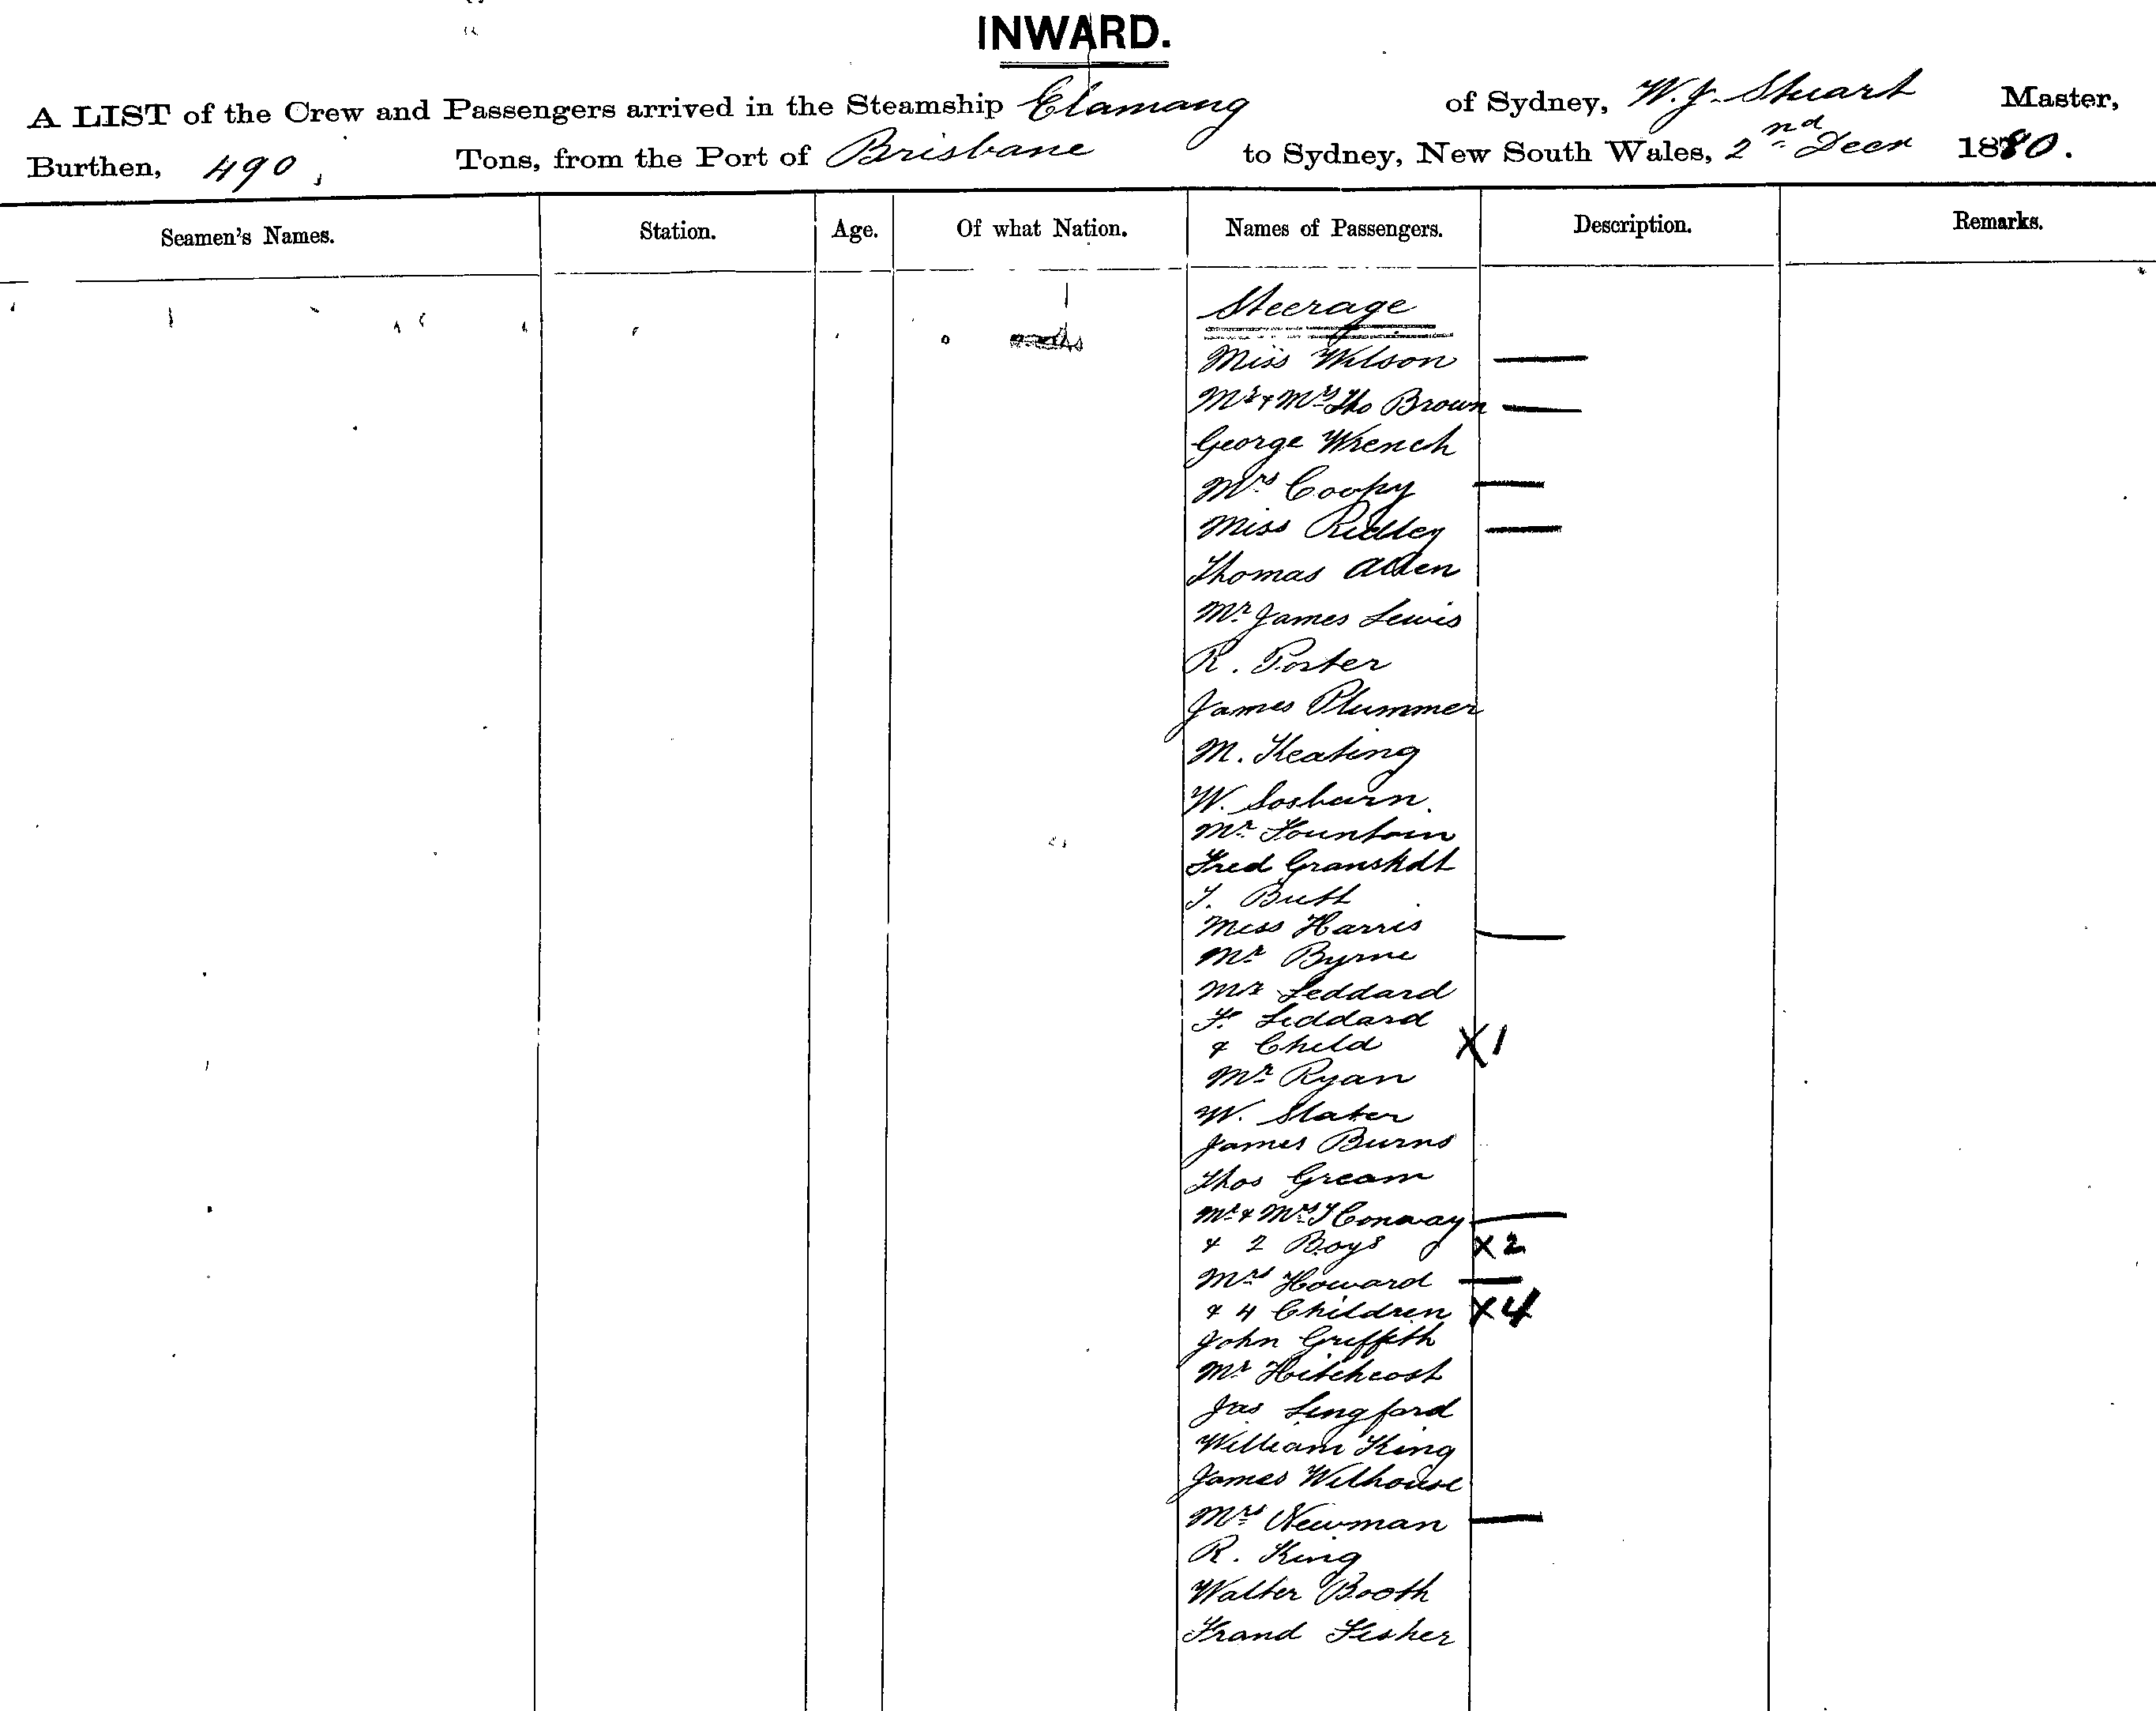 INWARD.
A LIST of the Crew and Passengers arrived in the Steamship Elamang of Sydney, W. J. Stuart Master,
Burthen, 490, Tons, from the Port of Brisbane to Sydney, New South Wales, 2nd Decr 1880.
Seamen's Names. Station. Age. Of what Nation. Names of Passengers. Description. Remarks.
Steerage
Miss Wilson
Mr & Mrs Tho Brown
George Wrench
Mrs
Miss Ridley
Thomas Allen
Mr James Lewis
R. Porter
James Plummer
M. Keating
W. Sosburn.
Mr Fountain
Fred Granstedt
T. Butt
Miss Harris
Mr Byrne
Mr Leddard
F. Leddard
& Child X1
Mr Ryan
W. Slater
James Burns
Thos Gream
Mr & Mrs T Conway
& 2 Boys X2
Mrs Howard
& 4 Children X4
John Griffith
Mr Hitchcost
Jas Lingford
William King
James Wilhouse
Mrs Newman
R. King
Walter Booth
Frand Fisher